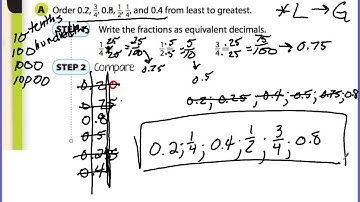 A Order 0.2, 3/4, 0.8, 1/2, 1/4, and 0.4 from least to greatest. * L → G
10-tenths
100 hundredths
1000
10,000
STEP 1 Write the fractions as equivalent decimals.
1/4 ·25/·25 = 25/100 1/2 ·5/·5 = 5/10 3/4 ·25/·25 = 75/100 → 0.75
0.25 0.5
STEP 2 Compare
0.2; 0.25; 0.4; 0.5; 0.75; 0.8
0.20
0.75
0.8
0.5
0.25
0.4
0.2; 1/4; 0.4; 1/2; 3/4; 0.8